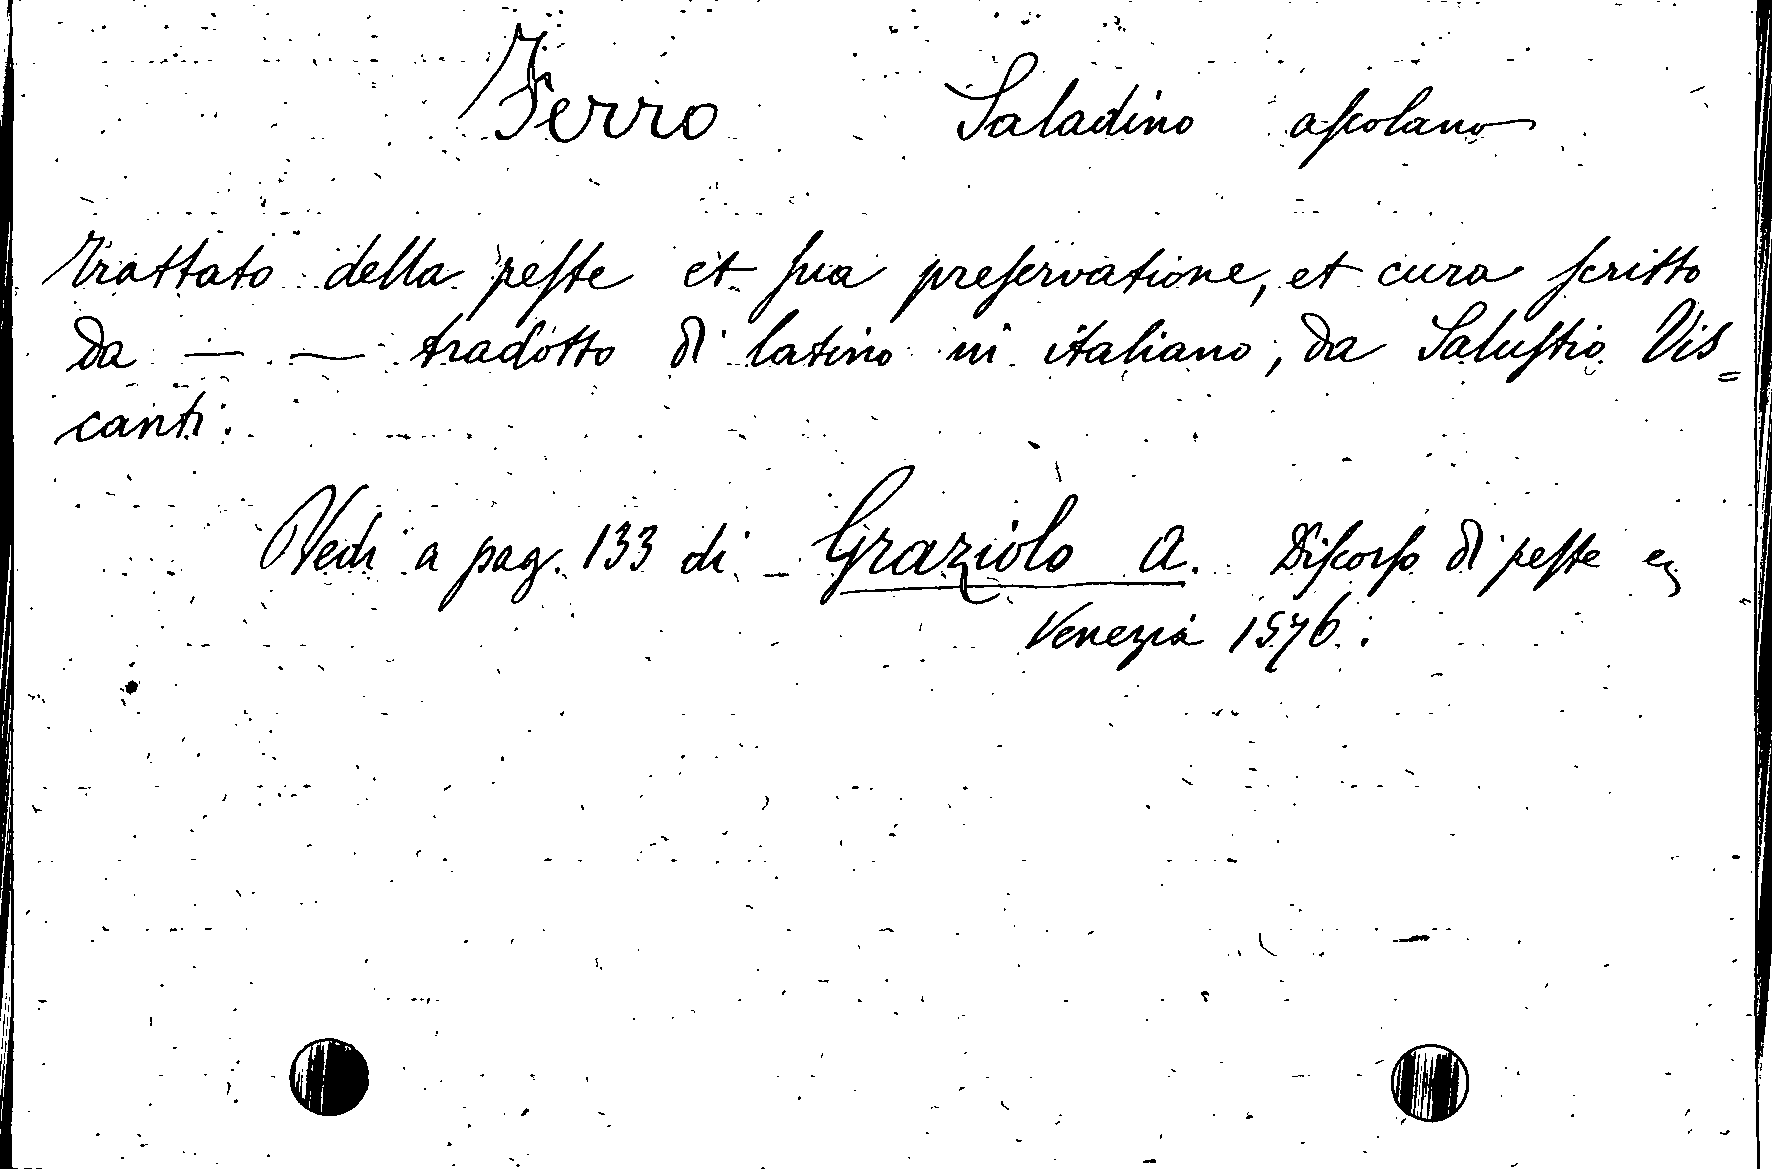 Ferro Saladino aſcolano
Trattato della peſte et ſua preſervatione, et cura ſcritto
da — — tradotto di latino in italiano, da Saluſtio Vis=
canti.
Vedi a pag. 133 di - Graziolo A. Diſcorſo di peſte ec
Venezia 1576.